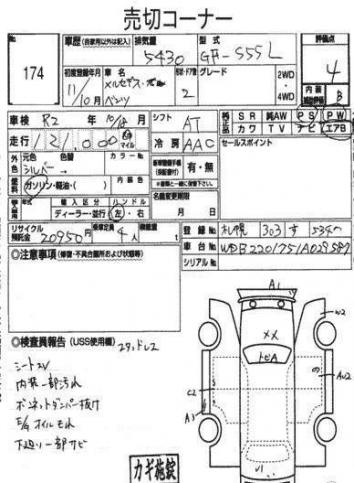 売切コーナー
No. 174
車歴 (自家用以外は記入) 排気量 5430 型式 GF-S55L 評価点 4
初度登録年月 11/10 車名 メルセデス・ ベンツ 2 グレード 2WD ・ 4WD 内装 B
車検 R2年10月 シフト AT SR 純AW PS PW
走行 121,000 km マイル 冷房 AAC カワ TV ナビ エアB
外色 元色 色替 カラーNo. シルバー 有・無 セールスポイント
燃料 ガソリン・軽油・( ) 内装色
名義変更期限 月 日
年式 輸入区分 ハンドル
ディーラー・並行 左・右
リサイクル預託金 20950円 乗車定員 4人 積載量 登録No. 札幌 303 す
車台No. WDB2201751A029587
シリアルNo.
◎注意事項 (修復・不具合箇所および状態等)
A1
W2
XX
トビA
AW2
C2
A3
V1
◎検査員報告 (USS使用欄) スタッドレス
シートスレ
内装一部汚れ
ボンネットダンパー抜け
E/gオイルモレ
下廻り一部サビ
カギ施錠